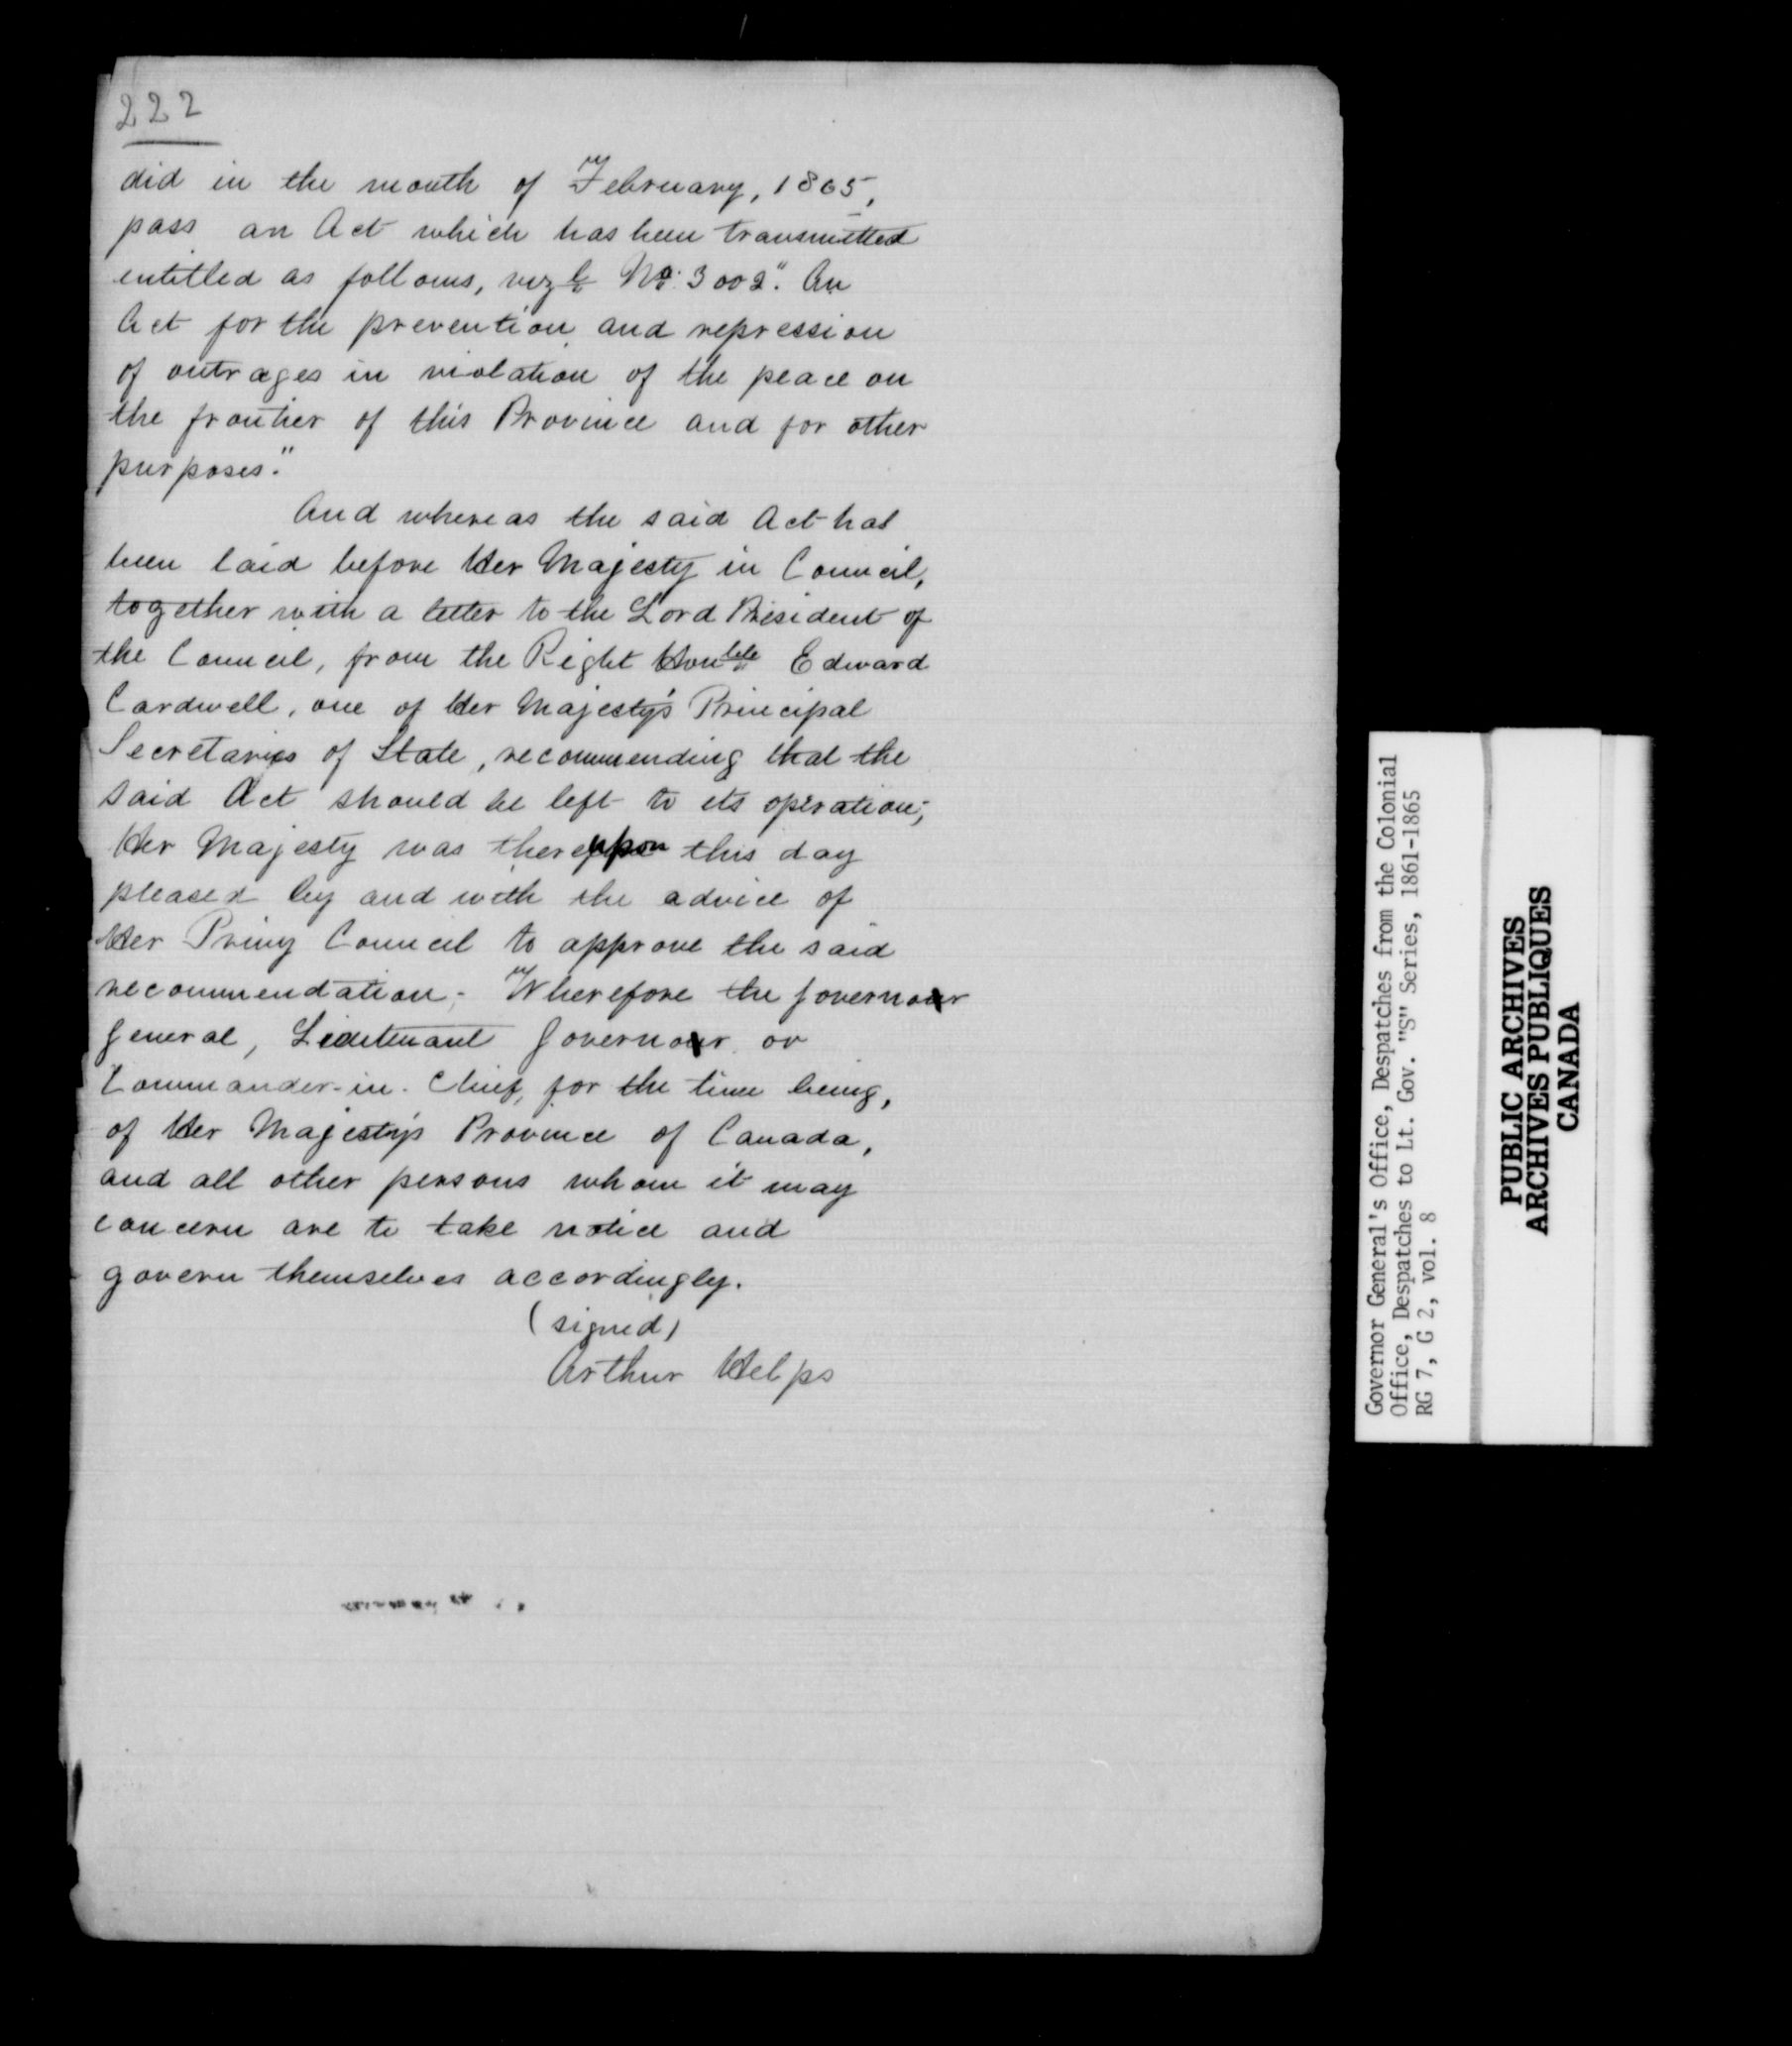 222
did in the month of February, 1865,
pass an Act which has been transmitted
entitled as follows, vizt No. 3002". An
Act for the prevention and repression
of outrages in violation of the peace on
the frontier of this Province and for other
purposes."
And whereas the said Act has
been laid before Her Majesty in Council,
together with a letter to the Lord President of
the Council, from the Right Honble Edward
Cardwell, one of Her Majesty's Principal
Secretaries of State, recommending that the
said Act should be left to its operation;
Her Majesty was thereupon this day
pleased by and with the advice of
Her Privy Council to approve the said
recommendation. Wherefore the Governor
General, Lieutenant Governor or
Commander-in-Chief, for the time being,
of Her Majesty's Province of Canada,
and all other persons whom it may
concern are to take notice and
govern themselves accordingly.
(signed)
Arthur Helps
Governor General's Office, Despatches from the Colonial
Office, Despatches to Lt. Gov. "S" Series, 1861-1865
RG 7, G 2, vol. 8
PUBLIC ARCHIVES
ARCHIVES PUBLIQUES
CANADA